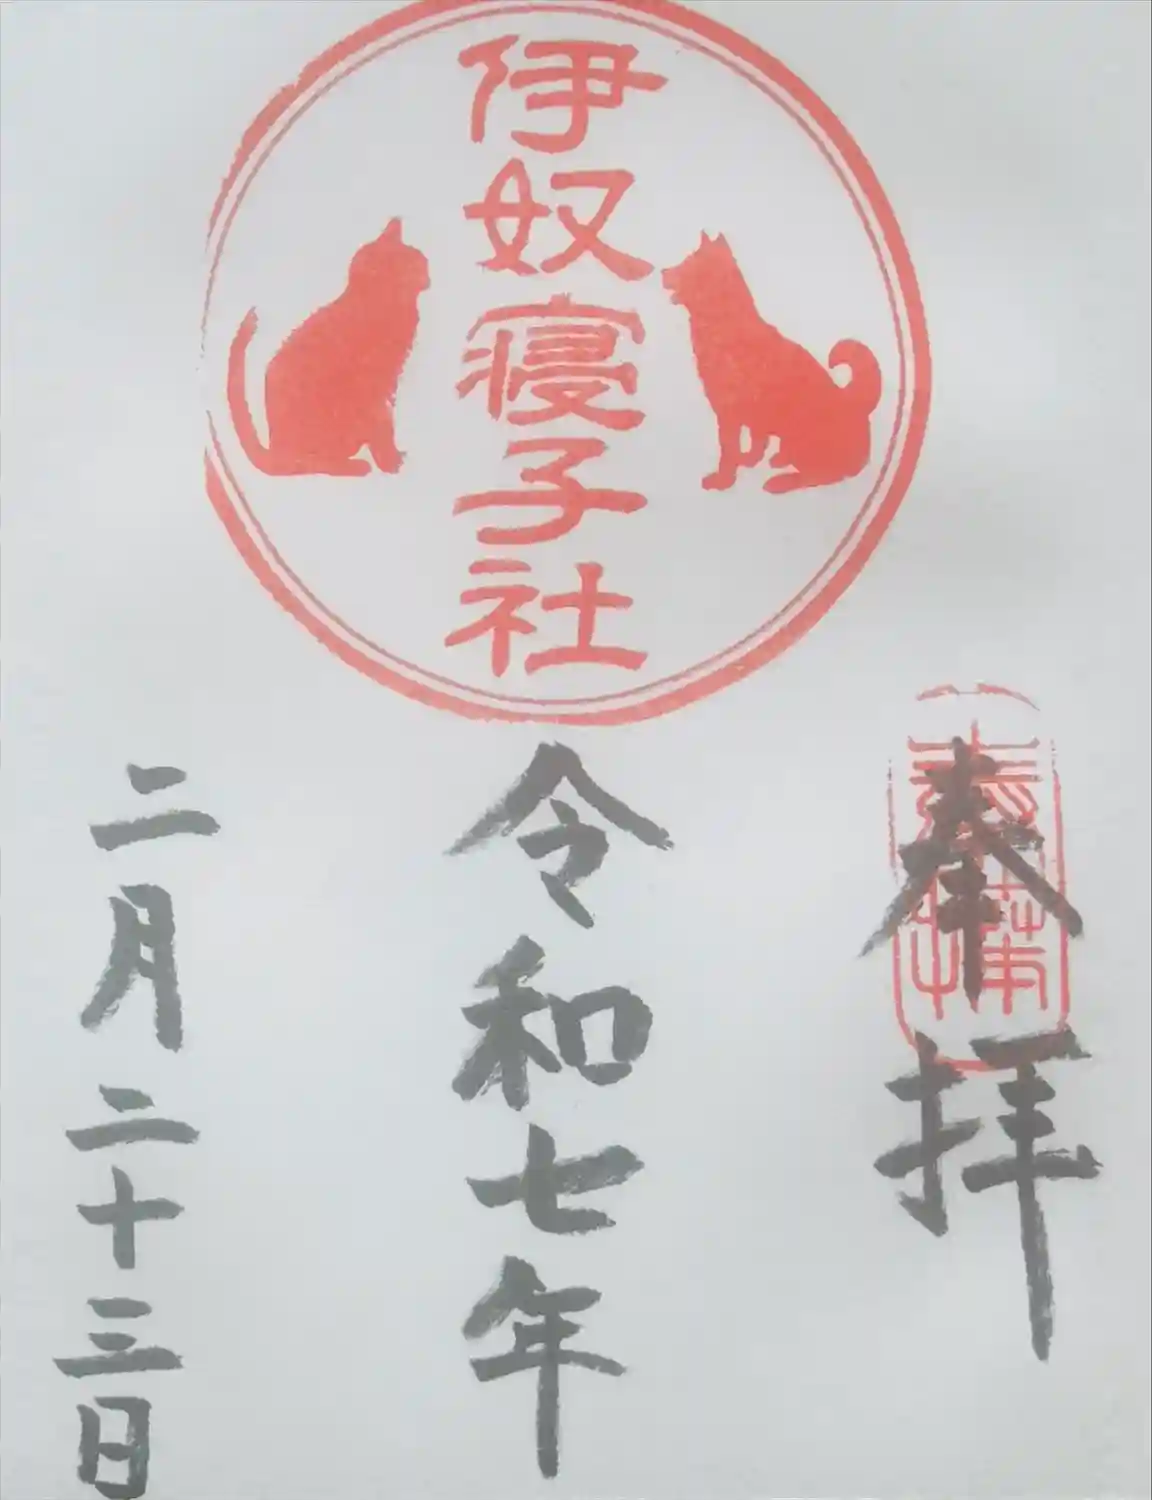 伊奴寝子社
奉拝
令和七年
二月二十三日